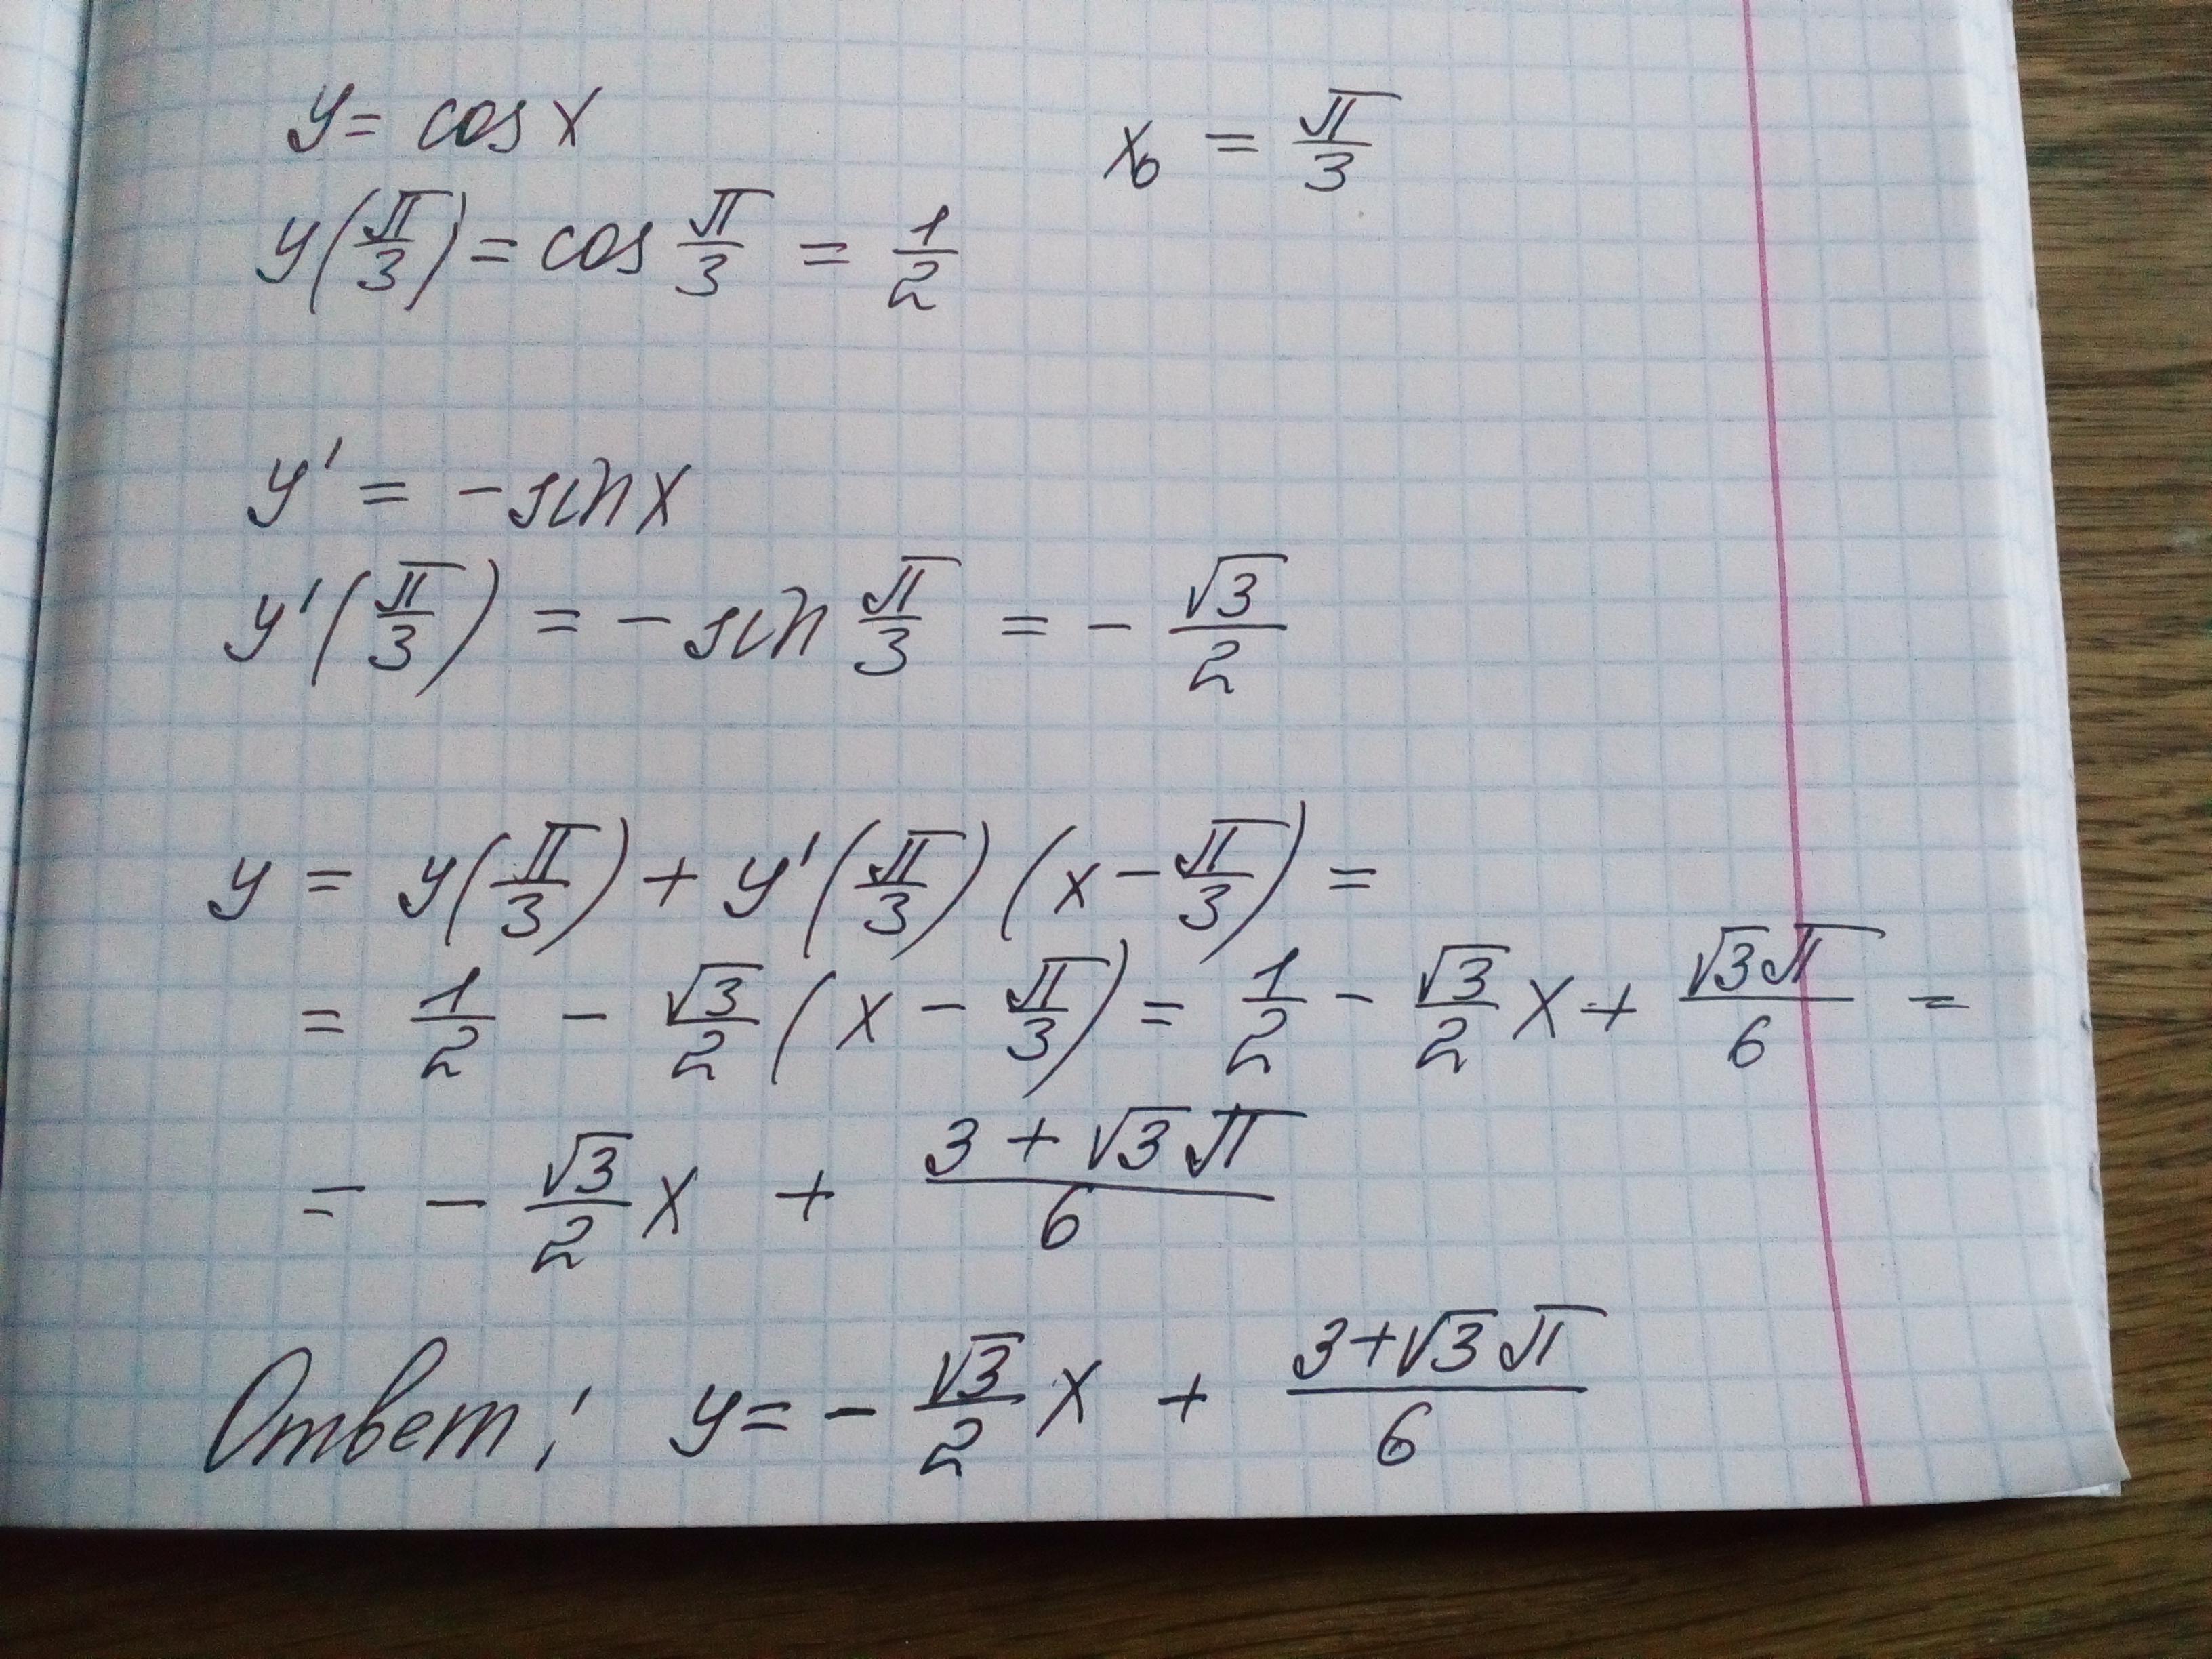 y = cos x    x₀ = π/3
y(π/3) = cos π/3 = 1/2
y' = -sin x
y'(π/3) = -sin π/3 = - √3/2
y = y(π/3) + y'(π/3) (x - π/3) =
= 1/2 - √3/2 (x - π/3) = 1/2 - √3/2 x + √3π/6 =
= - √3/2 x + (3 + √3π)/6
Ответ: y = - √3/2 x + (3+√3π)/6